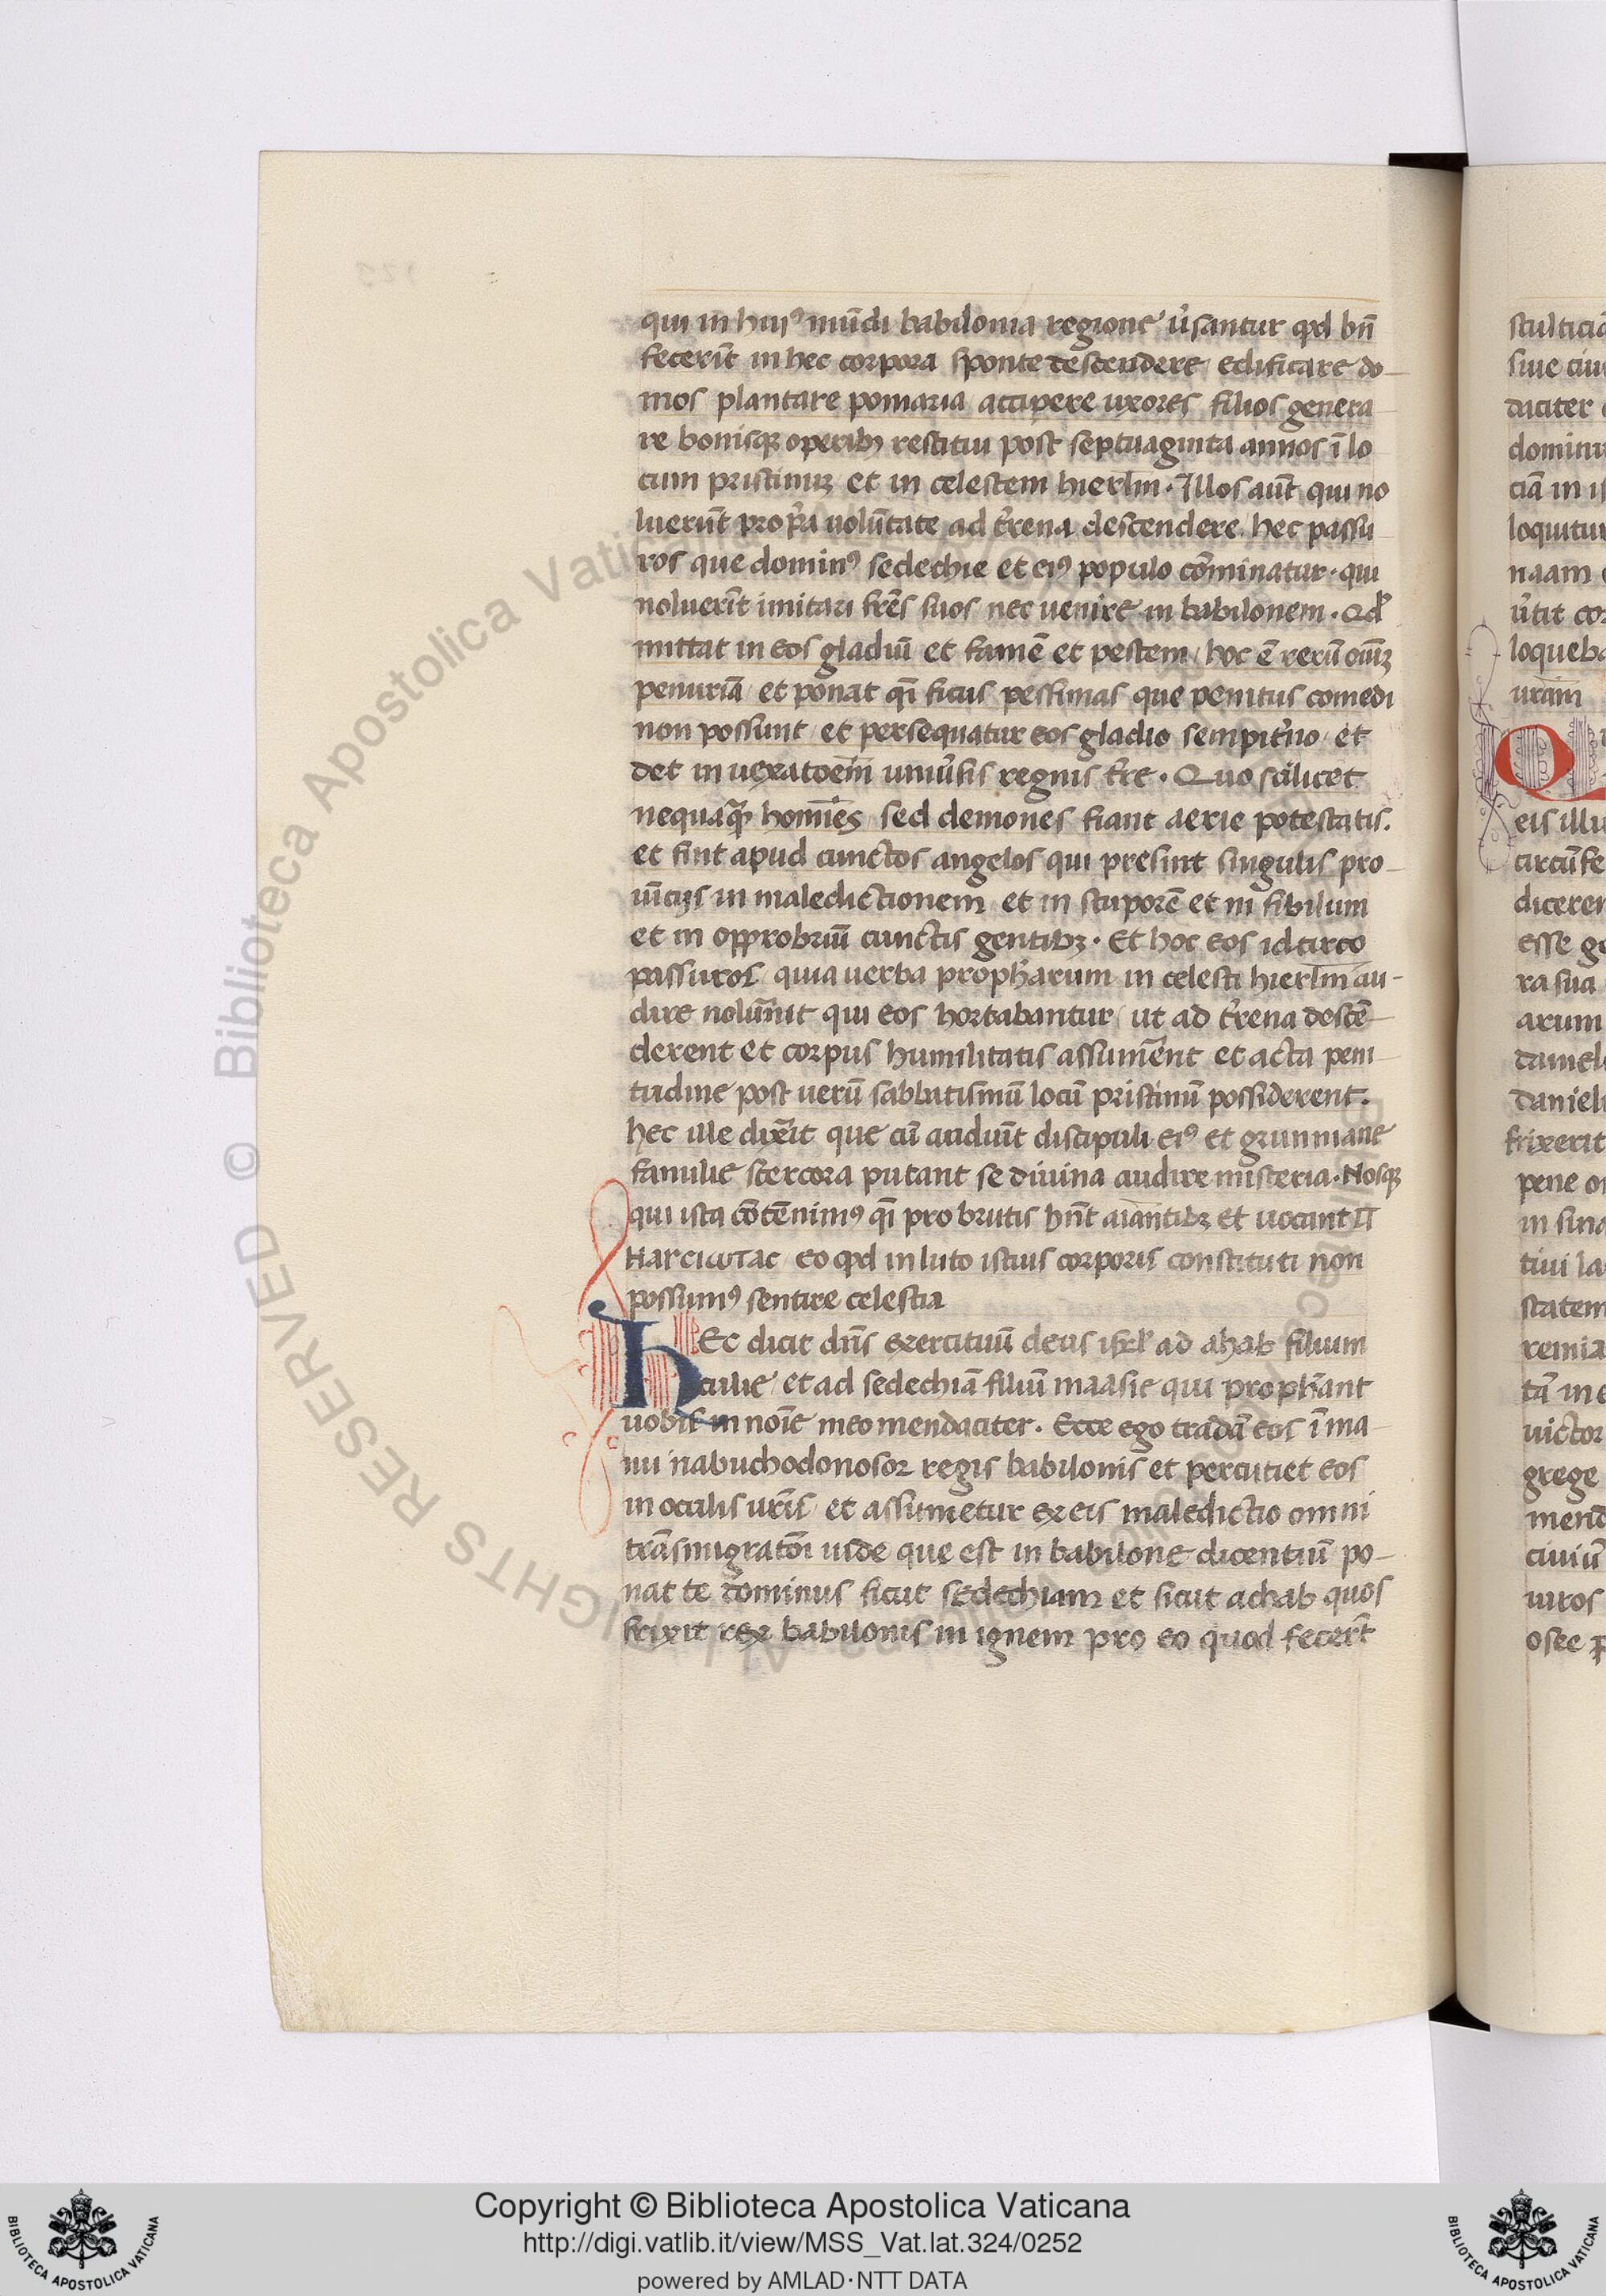 qui in huiꝰ mūdi babilonia regione u̓santur qd bn̄
fecerīt in hec corpora sponte descendere / edificare do-
mos plantare pomaria accipere uxores filios genera-
re bonisqꝫ operibꝫ restitui post septuaginta annos ī lo
cum pristinuꝫ et in celestem hierlm̄ . Illos aūt qui no
luerūt prop̓a uolūtate ad t̓rena descendere hec passu-
ros que dominꝰ sedechie et eiꝰ populo cōminatur . qui
noluerīt imitari frēs suos nec uenire in babilonem . Qd̓
mittat in eos gladiū et famē et pestem / hoc ē rerū oīuꝫ
penuriā et ponat qi̅ ficus pessimas que penitus comedi
non possunt / et persequatur eos gladio sempit̓no / et
det in uexatōem̄ uniu̓sis regnis t̓re . Quo scilicet
nequaq̄ꝫ homīes sed demones fiant aerie potestatis .
et sint apud cunctos angelos qui presint singulis pro-
uīcijs in maledictionem et in stuporē et in sibilum
et in opprobriū cunctis gentibꝫ . Et hoc eos idcirco
passuros quia uerba proph̄arum in celesti hierlm̄ au-
dire nolu̓unt qui eos hortabantur / ut ad t̓rena descē-
derent et corpus humilitatis assum̓ent et acta peni-
tudine post uerū sabbatismū locū pristinū possiderent .
hec ille dix̓it que cū audiūt discipuli eiꝰ et grunniane
familie stercora putant se diuina audire misteria . Nosqꝫ
qui ista cōtēnimꝰ qi̅ pro brutis hn̄t aīantibꝫ et uocant π
ΗΑΓCΙΩΤΑC eo qd in luto istius corporis constituti non
possumꝰ sentire celestia
HEc dicit dn̄s exercituū deus isrl̓ ad ahab filium
culie / et ad sedechiā filiū maasie qui proph̄ant
uobis in noīe meo mendaciter . Ecce ego tradā eos ī ma-
nu nabuchodonosor regis babilonis et percutiet eos
in oculis urīs / et assumetur ex eis maledictio omni
trāsmigratōi iude que est in babilone dicentiū po-
nat te dominus sicut sedechiam et sicut achab quos
frixit rex babilonis in ignem pro eo quod fecer̄t
sculticiā
siue ciui
daciter
dominu
ciā in is
loquitur
naam
u̓tit cor
loqueba
urām
Q
eis illu
circūfe
dicerem
esse ge
ra sua
arum
daniel
danieli
frixerit
pene om
in sina
tiui la
statem
remia
tā in e
uictor
grege
mend
ciuiū
uiros
osee p
Copyright © Biblioteca Apostolica Vaticana
http://digi.vatlib.it/view/MSS_Vat.lat.324/0252
powered by AMLAD·NTT DATA
BIBLIOTECA APOSTOLICA VATICANA
BIBLIOTECA APOSTOLICA VATICANA